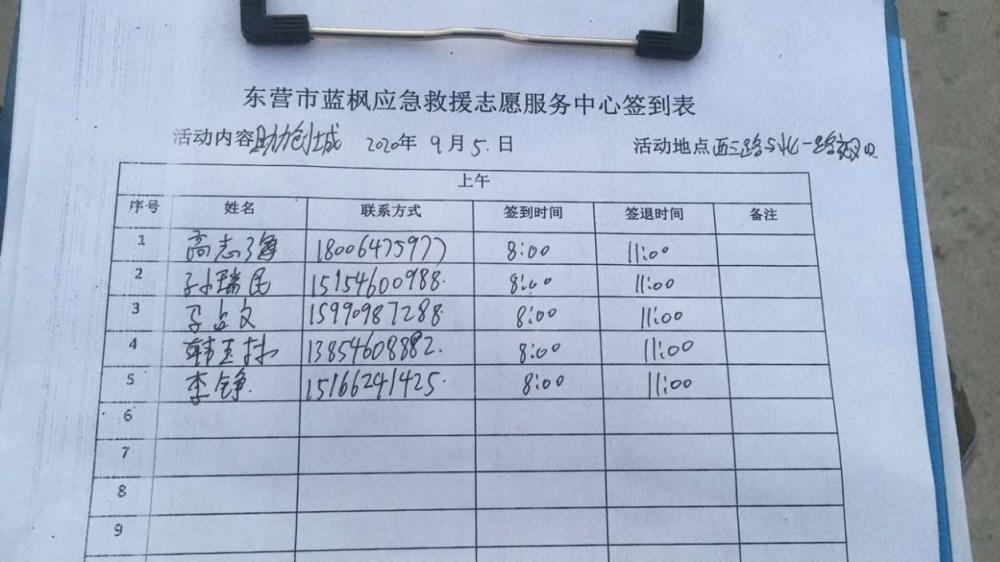 东营市蓝枫应急救援志愿服务中心签到表
活动内容 助力创城 2020年 9月5日 活动地点 西三路与北一路交叉口
上午
序号 姓名 联系方式 签到时间 签退时间 备注
1 高志海 18006475977 8:00 11:00
2 孙瑞民 15154600988 8:00 11:00
3 占文 15990987288 8:00 11:00
4 韩 13854608882 8:00 11:00
5 李铮 15166241425 8:00 11:00
6
7
8
9